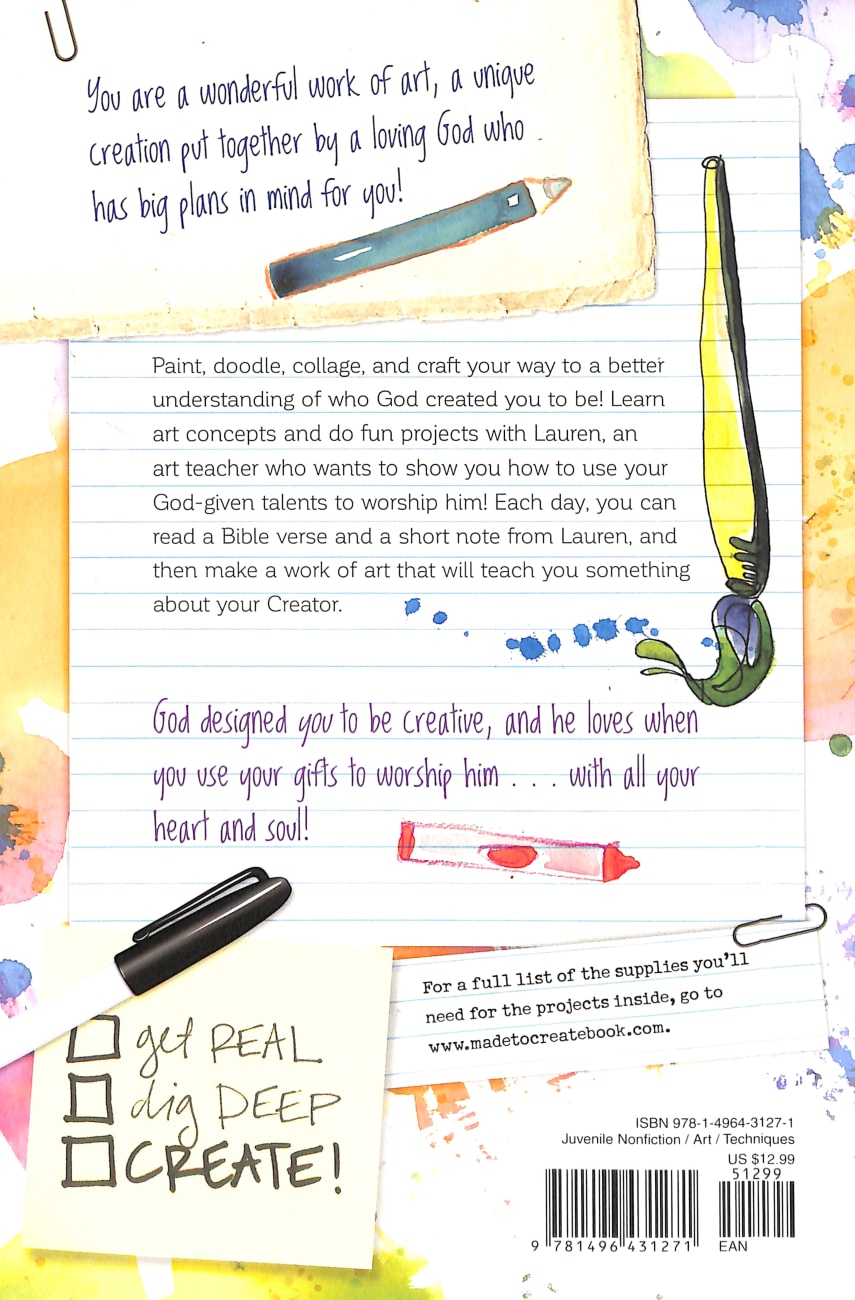 You are a wonderful work of art, a unique
creation put together by a loving God who
has big plans in mind for you!
Paint, doodle, collage, and craft your way to a better
understanding of who God created you to be! Learn
art concepts and do fun projects with Lauren, an
art teacher who wants to show you how to use your
God-given talents to worship him! Each day, you can
read a Bible verse and a short note from Lauren, and
then make a work of art that will teach you something
about your Creator.
God designed you to be creative, and he loves when
you use your gifts to worship him . . . with all your
heart and soul!
For a full list of the supplies you'll
need for the projects inside, go to
www.madetocreatebook.com.
get REAL
dig DEEP
CREATE!
ISBN 978-1-4964-3127-1
Juvenile Nonfiction / Art / Techniques
US $12.99
51299
9 781496 431271 EAN